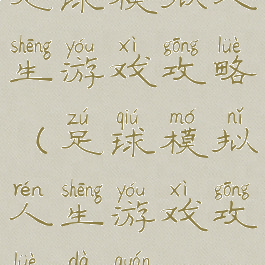 足球模拟人
shēng yóu xì gōng lüè
生游戏攻略
zú qiú mó nǐ
(足球模拟
rén shēng yóu xì gōng
人生游戏攻
lüè dà quán